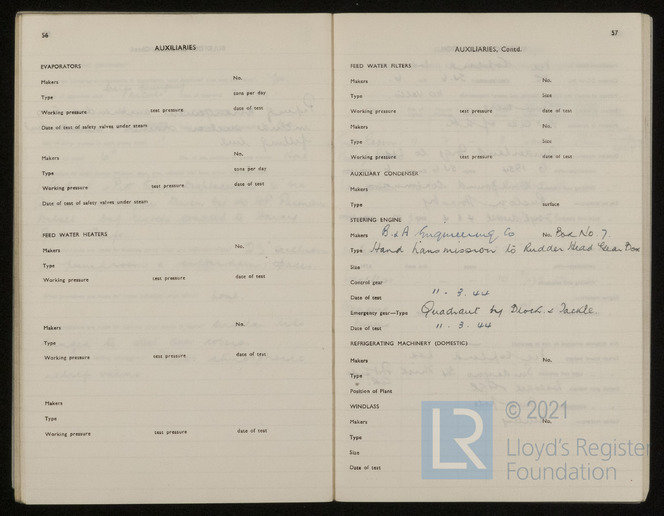 56
AUXILIARIES
EVAPORATORS
Makers No.
Type tons per day
Working pressure test pressure date of test
Date of test of safety valves under steam
Makers No.
Type tons per day
Working pressure test pressure date of test
Date of test of safety valves under steam
FEED WATER HEATERS
Makers No.
Type
Working pressure test pressure date of test
Makers No.
Type
Working pressure test pressure date of test
Makers
Type
Working pressure test pressure date of test
57
AUXILIARIES, Contd.
FEED WATER FILTERS
Makers No.
Type Size
Working pressure test pressure date of test
Makers No.
Type Size
Working pressure test pressure date of test
AUXILIARY CONDENSER
Makers
Type surface
STEERING ENGINE
Makers B & A Engineering Co No. Box No 7
Type Hand transmission to Rudder Head Gear Box
Size
Control gear
Date of test 11 . 3 . 44
Emergency gear—Type Quadrant by Block & Tackle.
Date of test 11 . 3 . 44
REFRIGERATING MACHINERY (DOMESTIC)
Makers No.
Type
Position of Plant
WINDLASS
Makers No.
Type
Size
Date of test
LR © 2021
Lloyd's Register
Foundation